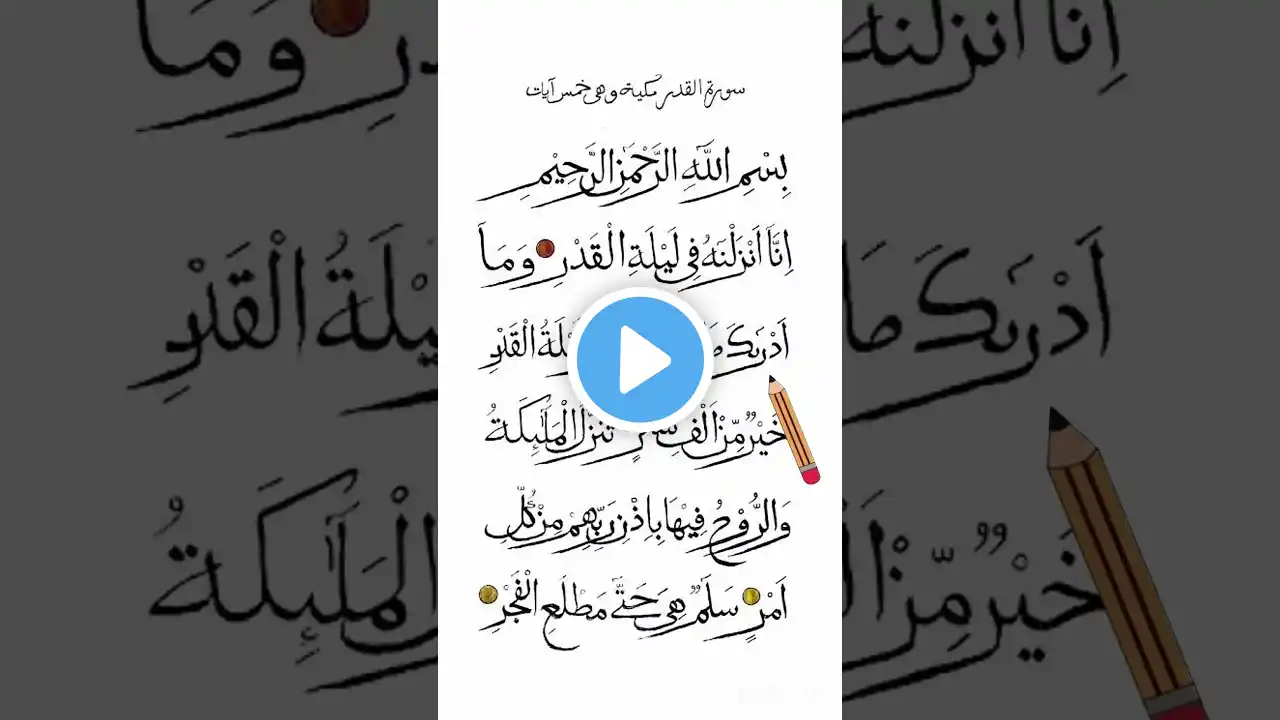 سورة القدر مكية وهى خمس آيات
بِسْمِ اللّٰهِ الرَّحْمٰنِ الرَّحِيْمِ
اِنَّآ اَنْزَلْنٰهُ فِى لَيْلَةِ الْقَدْرِ وَمَآ
اَدْرٰىكَ الْقَدْرِ
خَيْرٌ مِّنْ اَلْفِ تَنَزَّلُ الْمَلٰٓئِكَةُ
وَالرُّوْحُ فِيْهَا بِاِذْنِ رَبِّهِمْ مِنْ كُلِّ
اَمْرٍ سَلٰمٌ هِىَ حَتّٰى مَطْلَعِ الْفَجْرِ